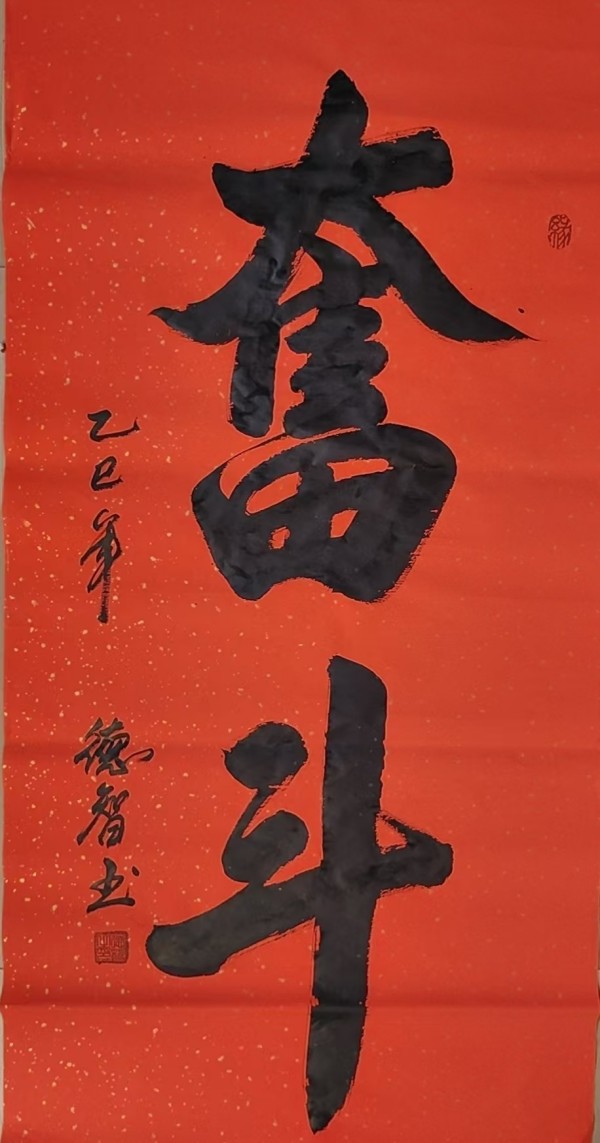 奮斗
乙巳年
德智书